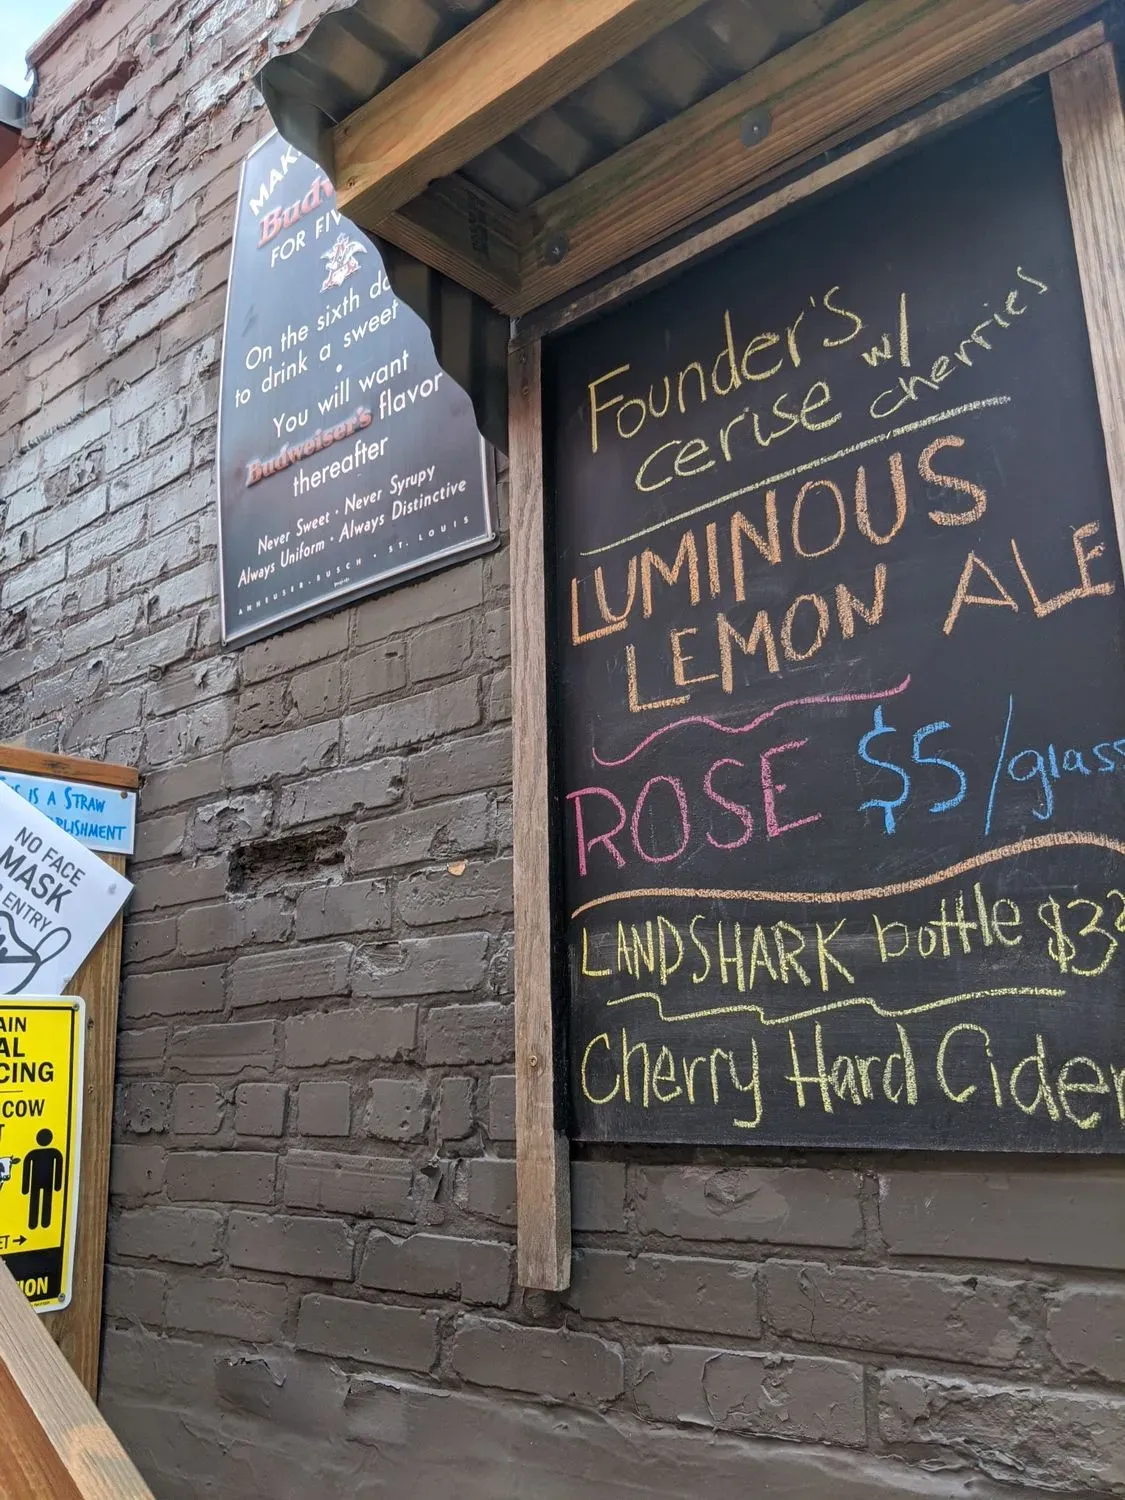 Budw
FOR FIV
On the sixth da
to drink a sweet
You will want
Budweiser's flavor
thereafter
Never Sweet · Never Syrupy
Always Uniform · Always Distinctive
ANHEUSER-BUSCH · ST. LOUIS
Founder's
cerise w/ cherries
LUMINOUS
LEMON ALE
ROSE $5/glass
LANDSHARK bottle $3
Cherry Hard Cider
IS A STRAW
NO FACE
MASK
ENTRY
AIN
AL
CING
COW